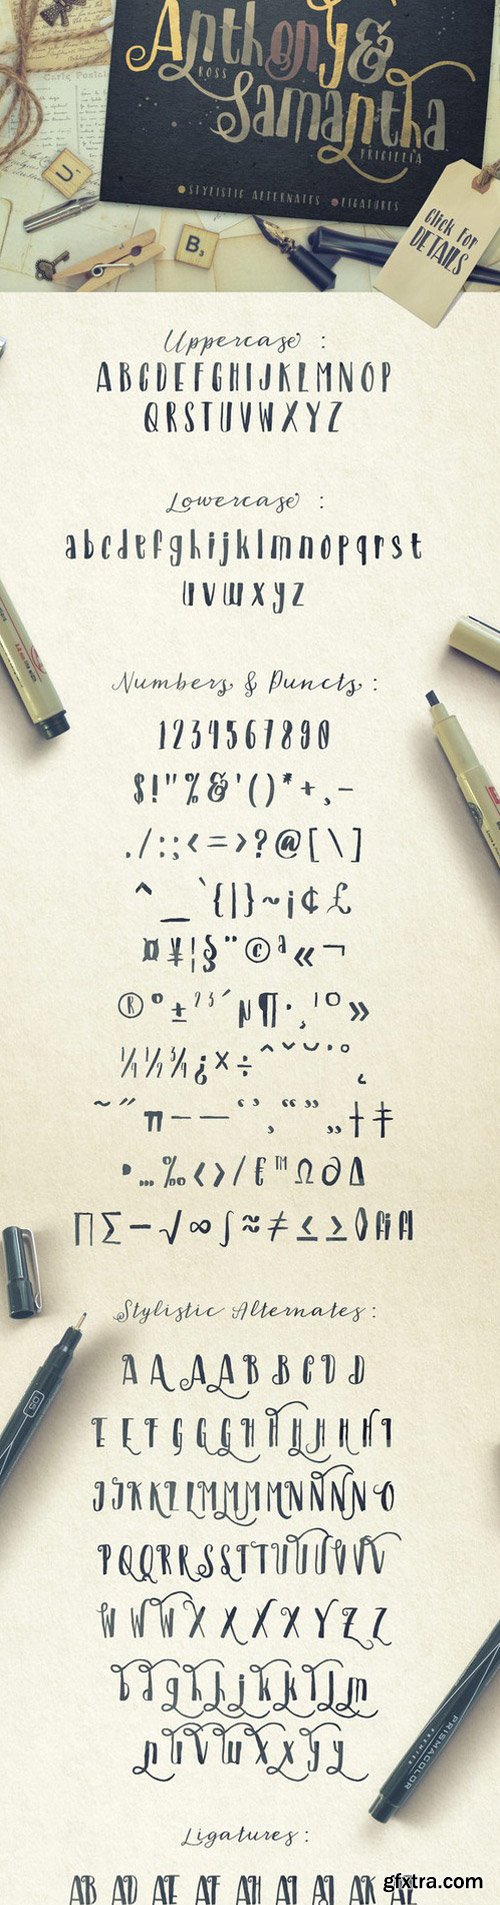 Anthony &
ROSS
Samantha
PRICILLIA
STYLISTIC ALTERNATES LIGATURES
Click For
DETAILS
U1
B3
Uppercase :
ABCDEFGHIJKLMNOP
QRSTUVWXYZ
Lowercase :
abcdefghijklmnopqrst
uvwxyz
Numbers & Puncts :
1234567890
$!"%&'()*+,-
./:;<=>?@[\]
^_`{|}~¡¢£
¤¥¦§¨©ª«¬
®°±²³´µ¶·¸¹º»
¼½¾¿×÷ˆˇ˘˙˚˛
˜˝π–—‘’‚“”„†‡
•…‰‹›⁄€™Ω∂∆
∏∑−√∞∫≈≠≤≥◊fifl
Stylistic Alternates :
A A A A B B C D D
E E F G G G H H H H H I
J J K K L L M M M M N N N O
P Q Q R R S S T T U U U V V
W W W X X X X Y Z Z
b d g h h j k k l l m
n u v w x x y y
Ligatures :
AB AD AE AF AH AI AJ AK AL
PRISMACOLOR
PREMIER
05
gfxtra.com